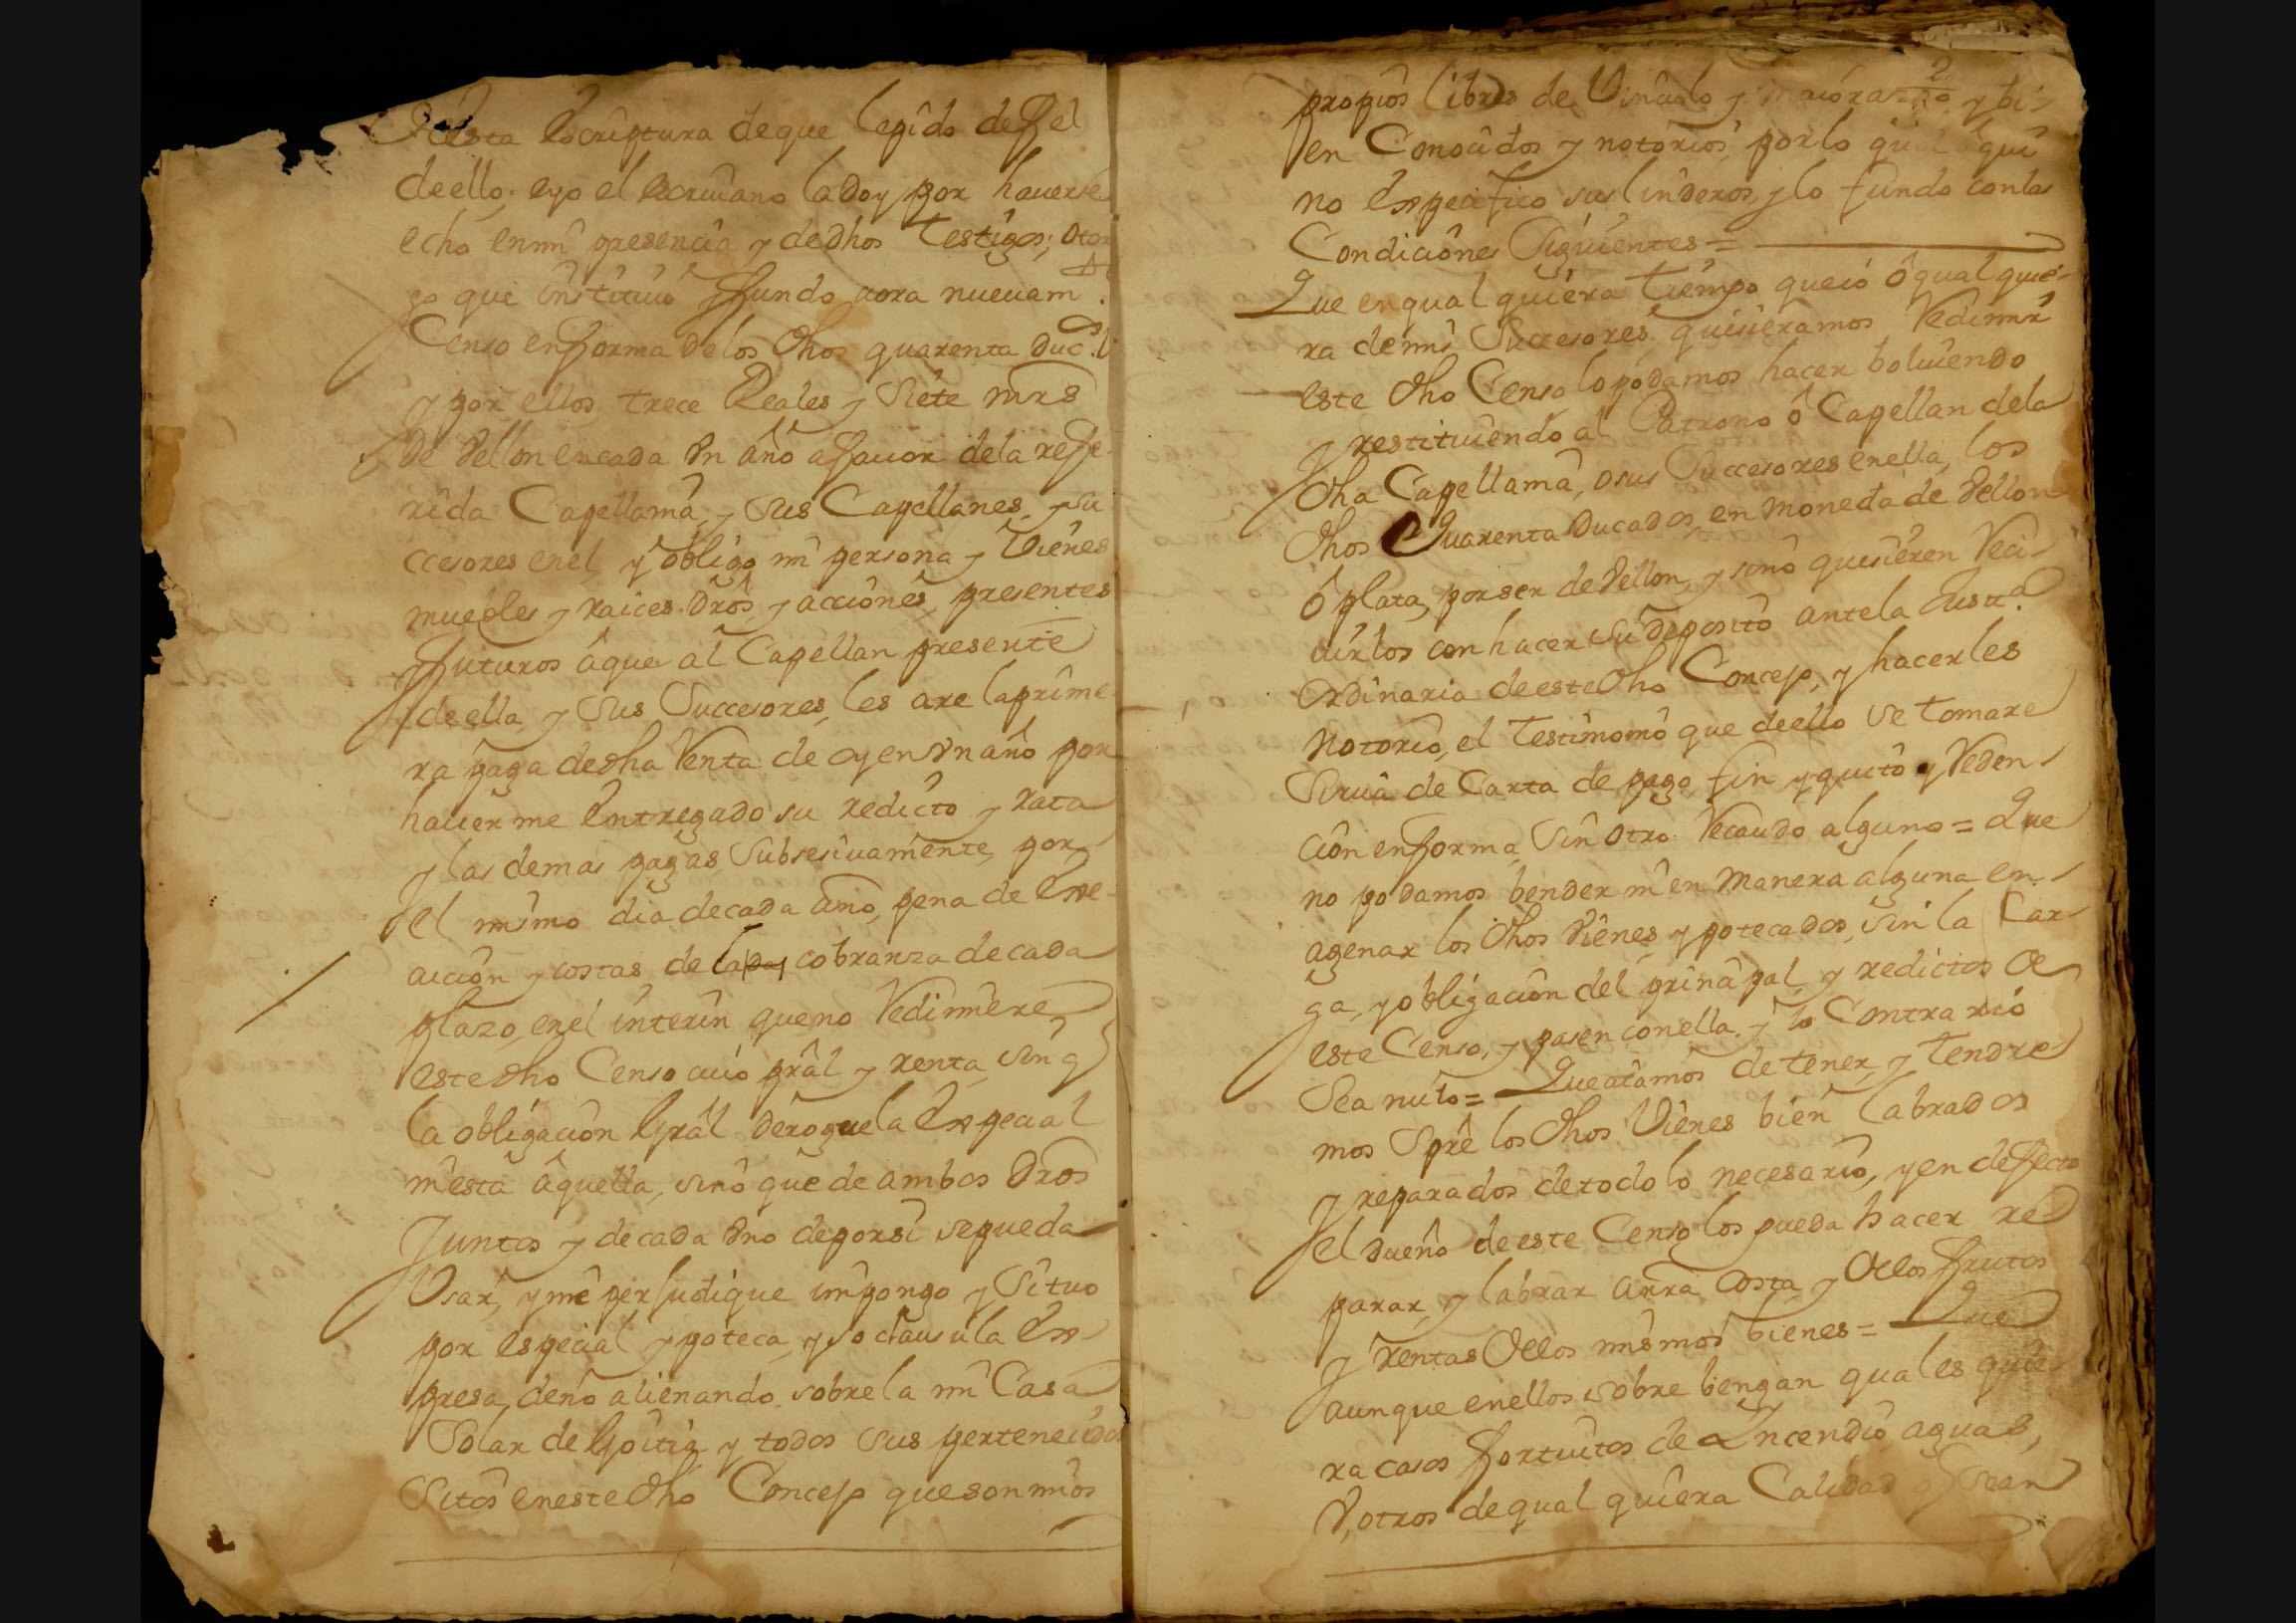 esta Escriptura de que le pido de Fee el
de ello; e yo el escriuano la doy por hauerse
echo en mi presencia y de dhos Testigos; otor
go que instituio y fundo aora nueuamte.
Censo en forma de los dhos quarenta ducs.
y por ellos trece Reales y Siete mrs
de Vellon en cada Vn año a fauor de la refe
rida Capellania, y Sus Capellanes, y Su
ccesores en el, y obligo mi persona y Vienes
muebles y raices dros, y acciones, presentes
y futuros â que al Capellan presente
de ella, y Sus Succesores, les are la prime
ra paga de dha Renta de oy en Vn año por
hauerme Entregado su redicto y rata
y las demas pagas Subsesiuamente, por
el mismo dia de cada año, pena de Exe-
cucion y costas de la cobranza de cada
plazo, en el interin que no Redimiere
este dho Censo cuio pral y renta, Sin q
la obligacion Gral derogue la Expecial
ni esta âquella, sinô que de ambos dros
Juntos y de cada Vno de por si se pueda
Vsar, y me perJudique impongo y Situo
por especial ypoteca, y so clausula Ex-
presa, de no alienando sobre la mi Casa
Solar de Goitia y todos sus pertenecidos
Sitos en este dho Concejo que son mios
2
propios libres de Vinculo y maiorazgo y bi-
en Conocidos y notorios, por lo qual aqui
no Expecifico sus linderos, y lo fundo con las
Condiciones Siguientes =
Que en qual quiera Tiempo que io ô qual quie-
ra de mis Succesores, quisieramos Redimir
este dho Censo lo podamos hacer boluiendo
y restituiendo al Patrono ô Capellan de la
dha Capellania, o sus Succesores en ella, los
dhos Quarenta Ducados, en moneda de Vellon
ô plata, por ser de Vellon, y sino quisieren Reci-
uirlos con hacer su deposito ante la Justa.
Ordinaria de este dho Concejo, y hacerles
notorio, el Testimonio que de ello se tomare
Sirua de Carta de pago, fin y quito y Reden-
cion en forma, Sin otro Recaudo alguno = Que
no podamos bender ni en manera alguna en-
agenar los dhos Vienes, ypotecados, sin la Car-
ga, y obligacion del principal, y redictos de
este Censo, y pasen con ella, y lo Contrario
Sea nulo = Que aiamos de tener, y Tendre
mos Spre los dhos Vienes bien labrados
y reparados de todo lo necesario, y en defecto
el dueño de este Censo los pueda hacer re
parar, y labrar a nra Costa, y de los frutos
y rentas de los mismos bienes = Que
aunque en ellos sobre bengan quales quie-
ra casos fortuitos de Incendio aguas,
V, otros de qual quiera Calidad q Sean